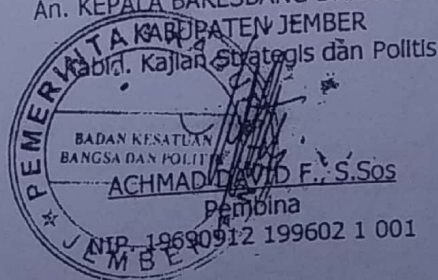 An. KEPALA BAKESBANG
KABUPATEN JEMBER
Kabid. Kajian Strategis dan Politis
PEMERINTA
BADAN KESATUAN
BANGSA DAN POLIT
ACHMAD DAVID F., S.Sos
Pembina
NIP. 19690912 199602 1 001
JEMBER